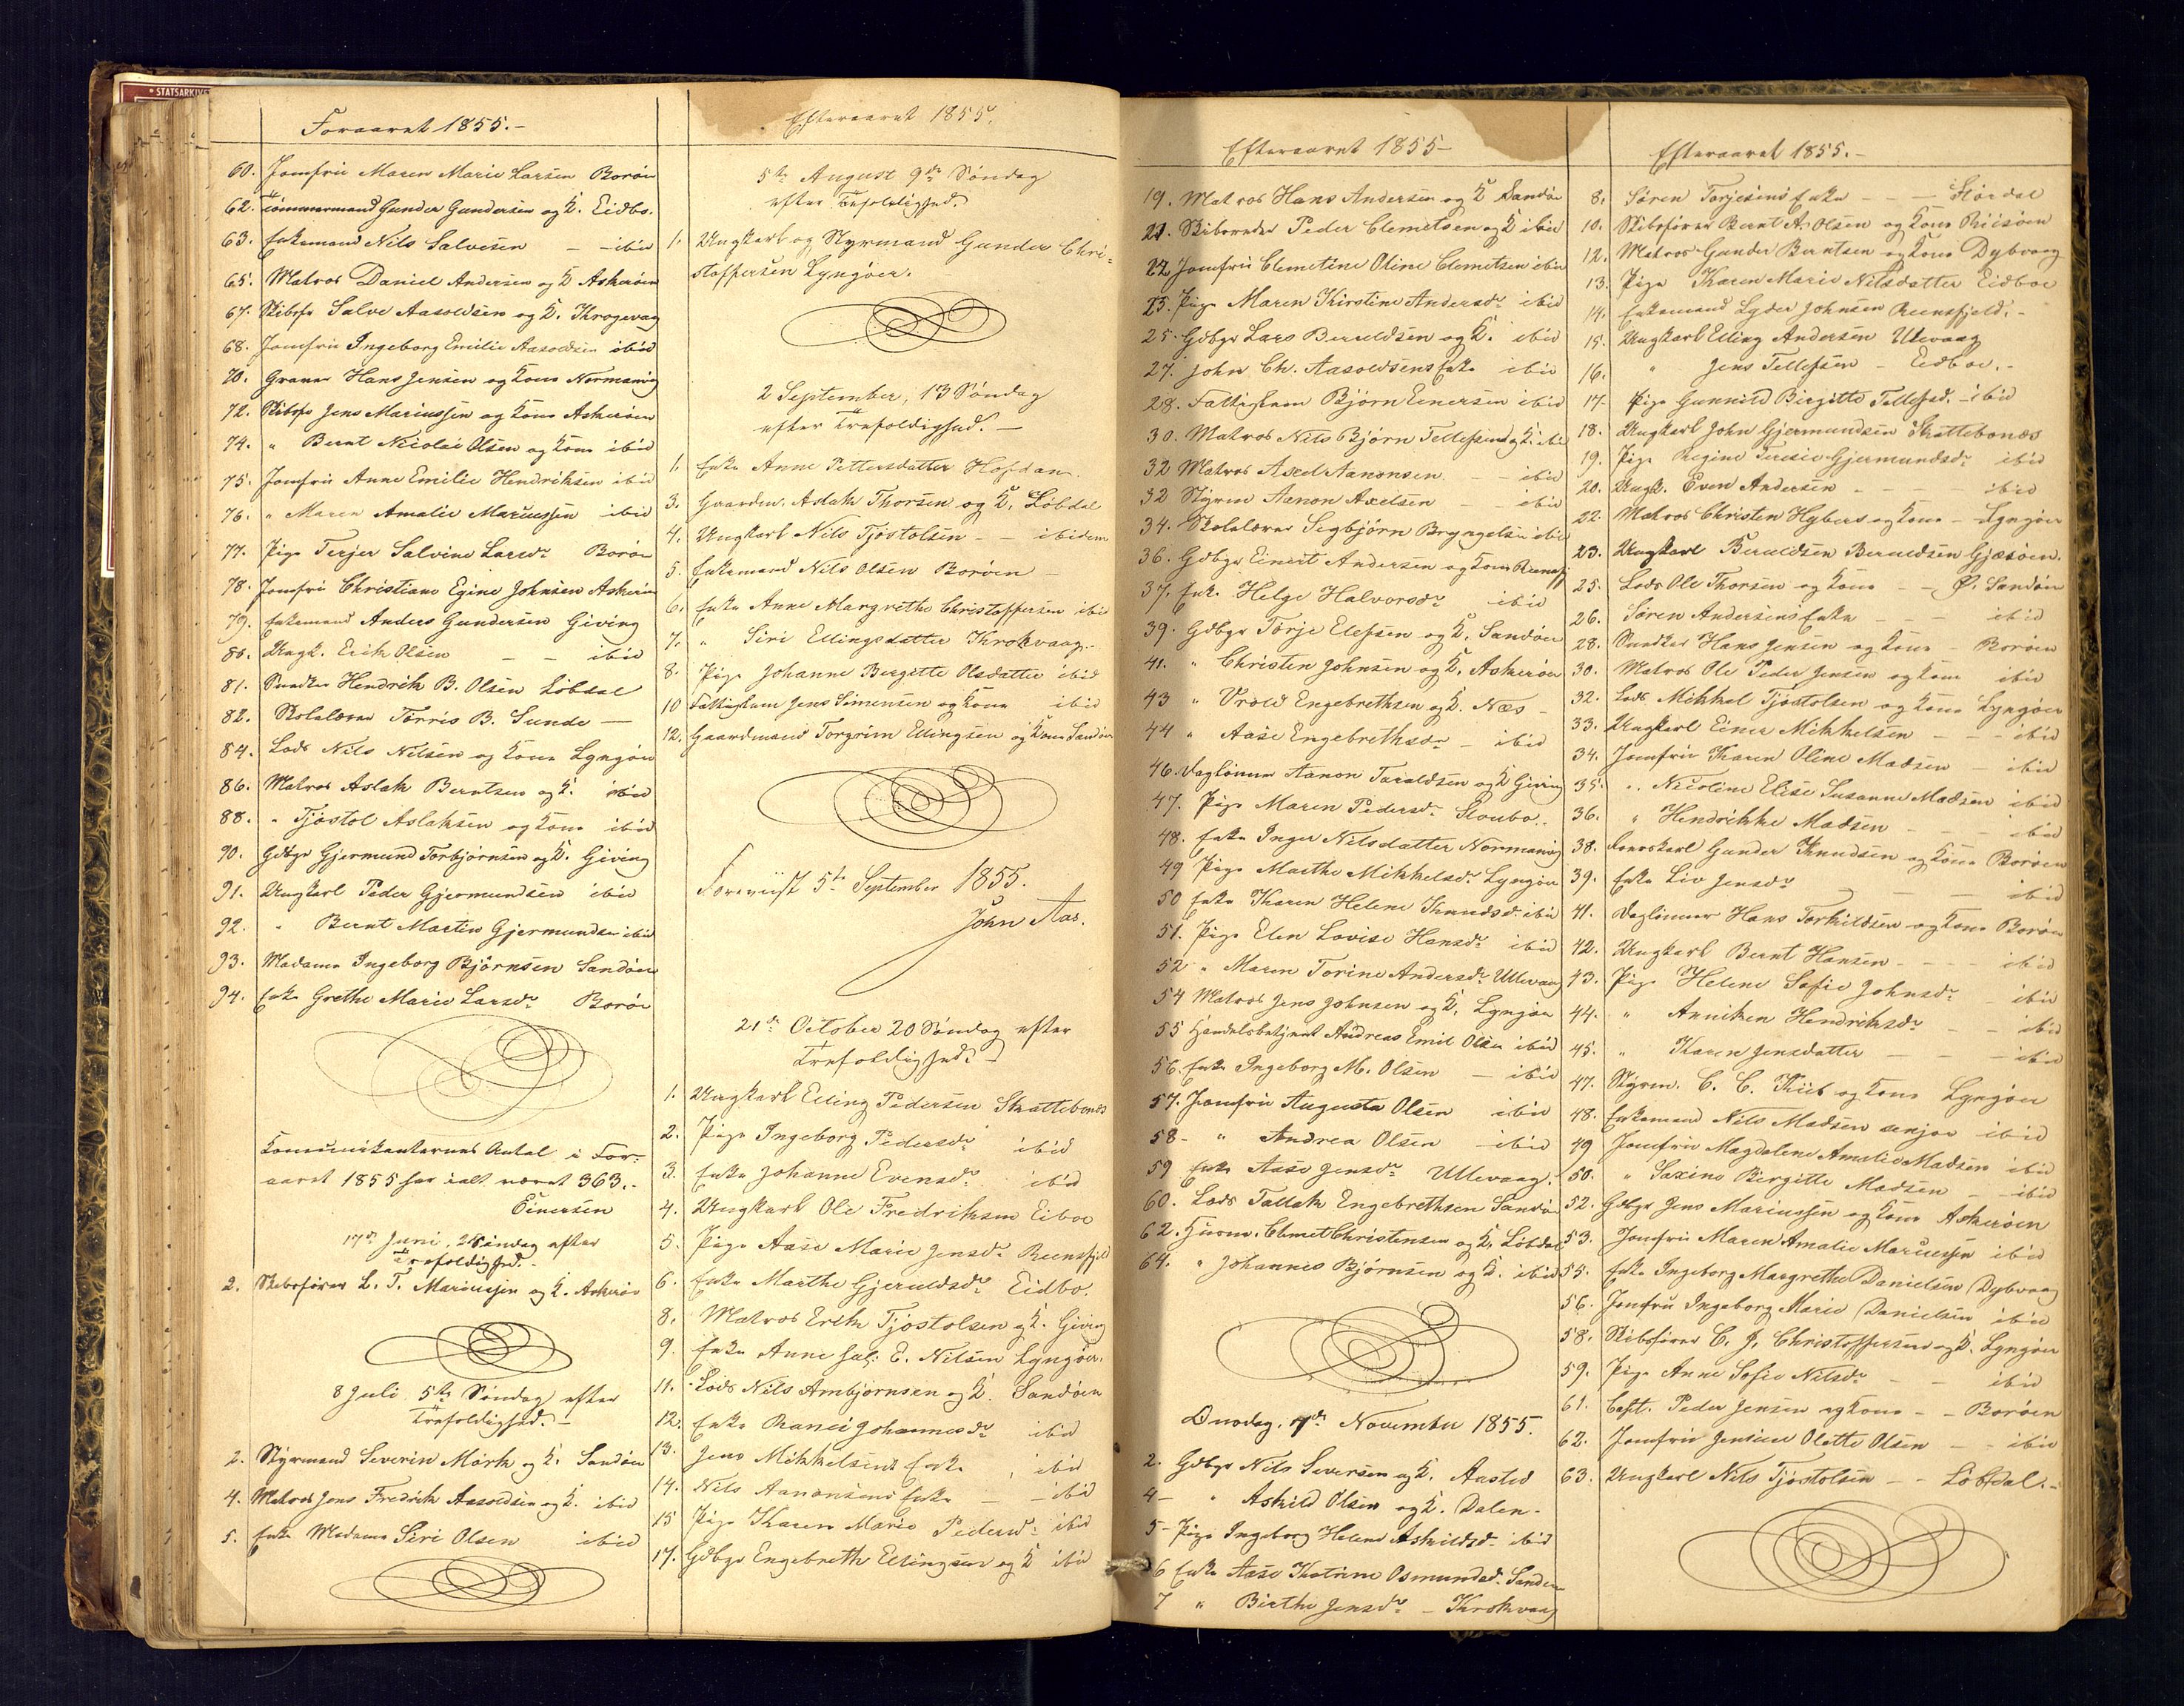 * STATSARKIVET
Foraaret 1855.-
60. Jomfru Maren Marie Larsen Borøen
62. Tømmermand Gunder Gundersen og K. Eidbo.
63. Enkemand Nils Salvesen - - ibid
65. Matros Daniel Andersen og K Askerøen
67. Skibsfø Salve Aasoldsen og K. Krogevaag
68. Jomfru Ingeborg Emilie Aasoldsen ibid
70. Graver Hans Jensen og Kone Normanvig
72. Skibsfø Jens Mariussen og Kone Askerøen
74. " Bernt Nicolai Olsen og Kone ibid
75. Jomfru Anne Emilie Hendriksen ibid
76. " Maren Amalie Mariussen ibid
77. Pige Terjer Salvine Larsdr Borøen
78. Jomfru Christiane Egine Johnsen Askerøen
79. Enkemand Anders Gundersen Giving
80. Ungk. Erik Olsen - - ibid
81. Snedker Hendrik B. Olsen Løbdal
82. Skolelærer Tørris B. Sunde -
84. Lods Nils Nilsen og Kone Lyngøer
86. Matros Aslak Berntsen og K. ibid
88. " Tjøstol Aslaksen og Kone ibid
90. Gdbgr Gjermund Torbjørnsen og K. Giving
91. Ungkarl Peder Gjermundsen ibid
92. " Bernt Martin Gjermundsen ibid
93. Madame Ingeborg Bjørnsen Sandøen
94. Enke Grethe Marie Larsdr Borøe
Communikanternes Antal i For-
aaret 1855 har ialt været 363.-
Einersen
17de Juni. 2 Søndag efter
Trefoldighed.-
2. Skibsfører L. T. Mariussen og K. Askerøe
8 Juli 5te Søndag efter
Trefoldighed.-
2. Styrmand Severin Mørk og K. Sandøen
4. Matros Jens Fredrik Aasoldsen og K. ibid
5. Enke Madame Siri Olsen ibid
Efteraaret 1855.
5te August 9de Søndag
efter Trefoldighed.
1. Ungkarl og Styrmand Gunder Chri-
stoffersen Lyngøer.
2 September, 13 Søndag
efter Trefoldighed.-
1. Enke Anne Pettersdatter Hofdan
3. Gaardm. Aslak Thorsen og K. Løbdal
4. Ungkarl Nils Tjøstolsen - - ibidem
5. Enkemand Nils Olsen Borøen -
6. Enke Anne Margrethe Christoffersen ibid
7. " Siri Ellingsdatter Krokvaag.-
8. Pige Johanne Bergette Olsdatter ibid
10 Fattiglem Jens Simensen og Kone ibid
12. Gaardmand Torgrim Ellingsen og Kone Sandøen
Foreviist 5te September 1855.
John Aas.
21de October 20 Søndag efter
Trefoldighed.-
1. Ungkarl Elling Pedersen Skottebonæs
2. Pige Ingeborg Pedersdr ibid
3. Enke Johanne Evensdr ibid
4. Ungkarl Ole Fredriksen Eiboe
5. Pige Aase Marie Jensdr Reensfjeld
6. Enke Marthe Gjeruldsdr Eidbo.
8. Matros Erik Tjøstolsen og K. Giving
9. Enke Anne sal: E. Nilsen Lyngøer.
11. Lods Nils Ambjørnsen og K. Sandøen
12. Enke Ranei Johannesdr ibid
13. Jens Mikkelsens Enke ibid
14. Nils Aanonsens Enke - - ibid
15 Pige Karen Marie Pedersdr ibid
17. Gdbgr Engebreth Ellingsen og K ibid
Efteraaret 1855-
19. Matros Hans Andersen og K Sandøen
21. Skibsreder Peder Clemetsen og K ibid
22 Jomfru Clemetine Oline Clemetsen ibid
23. Pige Maren Kirstine Andersdr ibid
25. Gdbgr Lars Beruldsen og K. ibid
27. John Ch. Aasoldsens Enke ibid
28. Fattiglem Bjørn Einersen ibid
30. Matros Nils Bjørn Tellefsen og K. ibi
32 Matros Axel Aanonsen - - ibid
32 Styrm Aanon Axelsen - ibid
34. Skolelærer Sigbjørn Bryngelsen ibid
36. Gdbgr Einert Andersen og Kone Reensfj
37. Enk. Helge Halvorsdr ibid
39. Gdbgr Torje Elefsen og K. Sandøen
41. " Christen Johnsen og K. Askerøen
43 " Vrold Engebrethsen og K. Næs -
44 " Aase Engebrethsdr - ibid
46. Daglønner Aanon Taraldsen og K Giving
47. Pige Maren Pedersdr Sloubo.
48. Enke Inger Nilsdatter Normanvig
49 Pige Marthe Mikkelsdr Lyngøer
50 Enke Karen Helene Knudsdr ibid
51. Pige Elen Lovise Hansdr ibid
52 " Maren Torine Andersdr Ullevaag
54 Matros Jens Johnsen og K. Lyngøer
55 Handelsbetjent Andreas Emil Olsen ibid
56. Enke Ingeborg M. Olsen - ibid
57. Jomfru Augusta Olsen ibid
58- " Andrea Olsen ibid
59 Enke Aase Jensdr Ullevaag.
60. Lods Tallak Engebrethsen Sandøe
62. Huusm. Clemet Christensen og K. Løbdal
64. " Johannes Bjørnsen og K. ibid
Onsdag. 7de November 1855.
2. Gdbgr Nils Seversen og K. Aasted
4- " Askild Olsen og K. Dalen-
5- Pige Ingeborg Helene Askildsdr ibid
6 Enke Aase Katrine Osmundsd. Sandøe
7 " Birthe Jensdr - Krokvaag
Efteraaret 1855.-
8. Søren Torjesens Enke - - Hørdal
10. Skibsfører Bernt A. Olsen og Kone Riisøen
12. Matros Gunder Berntsen og Kone Dybvaag
13. Pige Karen Marie Nilsdatter Eidboe
14. Enkemand Lyder Johnsen Reensfjeld.-
15. Ungkarl Elling Andersen Ulevaag
16. " Jens Tellefsen - Eidboe.-
17- Pige Gunnild Birgitte Tellefsd. - ibid
18. Ungkarl John Gjermundsen Skottebonæs
19. Pige Regine Teresie Gjermundsdr ibid
20. Ungk. Even Andersen - - ibid
22. Matros Christen Hybers og Kone - Lyngøer
23. Ungkarl Beruldsen Beruldsen Gjæsøen.
25. Lods Ole Thorsen og Kone - - Ø. Sandøen
26. Søren Andersens Enke - - ibid
28. Snedker Hans Jensen og Kone - Borøen
30. Matros Ole Peder Jensen og Kone ibid
32. Lods Mikkel Tjøstolsen og Kone Lyngøer
33. Ungkarl Einer Mikkelsen - - - ibid
34. Jomfru Karen Oline Madsen - ibid
35. " Nicoline Elise Susanne Madsen ibid
36. " Hendrikke Madsen - - ibid
38. Gunder Knudsen og Kone Borøen
39. Enke Liv Jensdr - - ibid
41. Daglønner Hans Torkildsen og Kone Borøen
42. Ungkarl Bernt Hansen - - - ibid
43. Pige Helene Sofie Johnsdr ibid
44. " Anniken Hendriksdr - - ibid
45. " Karen Jensdatter - - - ibid
47. Styrm. C. C. Kiib og Kone Lyngøer
48. Enkemand Nils Madsen senjor ibid
49 Jomfru Magdalene Amalie Madsen ibid
50. " Saxine Birgitte Madsen - ibid
52. Gdbgr Jens Mariussen og Kone Askerøen
53. Jomfru Maren Amalie Mariussen ibid
55. Enke Ingeborg Margrethe Danielsen Dybvaag
56. Jomfru Ingeborg Marie Danielsen ibid
58. Skibsfører C. J. Christoffersen og K. Lyngøer
59. Pige Anne Sofie Nilsdr - - ibid
61. Capt. Peder Jensen og Kone - - Borøen
62. Jomfru Jensine Olette Olsen - - ibid
63. Ungkarl Nils Tjøstolsen - - Løbdal.-